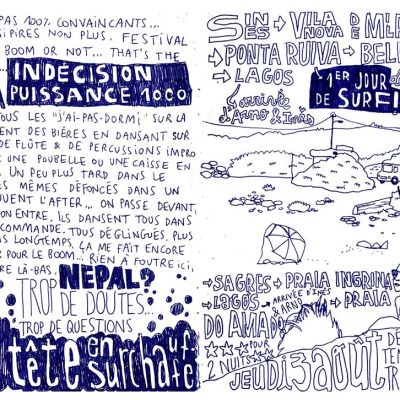 PAS 100% CONVAINCANTS...
PIRES NON PLUS. FESTIVAL
BOOM OR NOT... THAT'S THE
INDÉCISION
PUISSANCE 1000
OUS LES "J'AI-PAS-DORMI" SUR LA
ENT DES BIÈRES EN DANSANT SUR
DE FLÛTE & DE PERCUSSIONS IMPRO
UNE POUBELLE OU UNE CAISSE EN
. UN PEU PLUS TARD DANS LE
S MÊMES DÉFONCÉS DANS UN
UENT L'AFTER... ON PASSE DEVANT,
ON ENTRE, ILS DANSENT TOUS DANS
COMMANDE. TOUS DÉGLINGUÉS, PLUS
S LONGTEMPS. ÇA ME FAIT ENCORE
POUR LE BOOM... RIEN À FOUTRE ICI,
RE LÀ-BAS.
NÉPAL?
TROP DE DOUTES...
TROP DE QUESTIONS
tête en surchauffe
SINES → VILA NOVA DE MILF
→ PONTA RUIVA → BEL
→ LAGOS
1ER JOUR
DE SURF!
L'arrivée
d'Arno & Inès
→ SAGRES → PRAIA INGRINA
→ LAGOS
ARRIVÉE D'INÈS
& ARNO
→ PRAIA
DO AMADO
POUR
2 NUITS
JEUDI 3 AOÛT